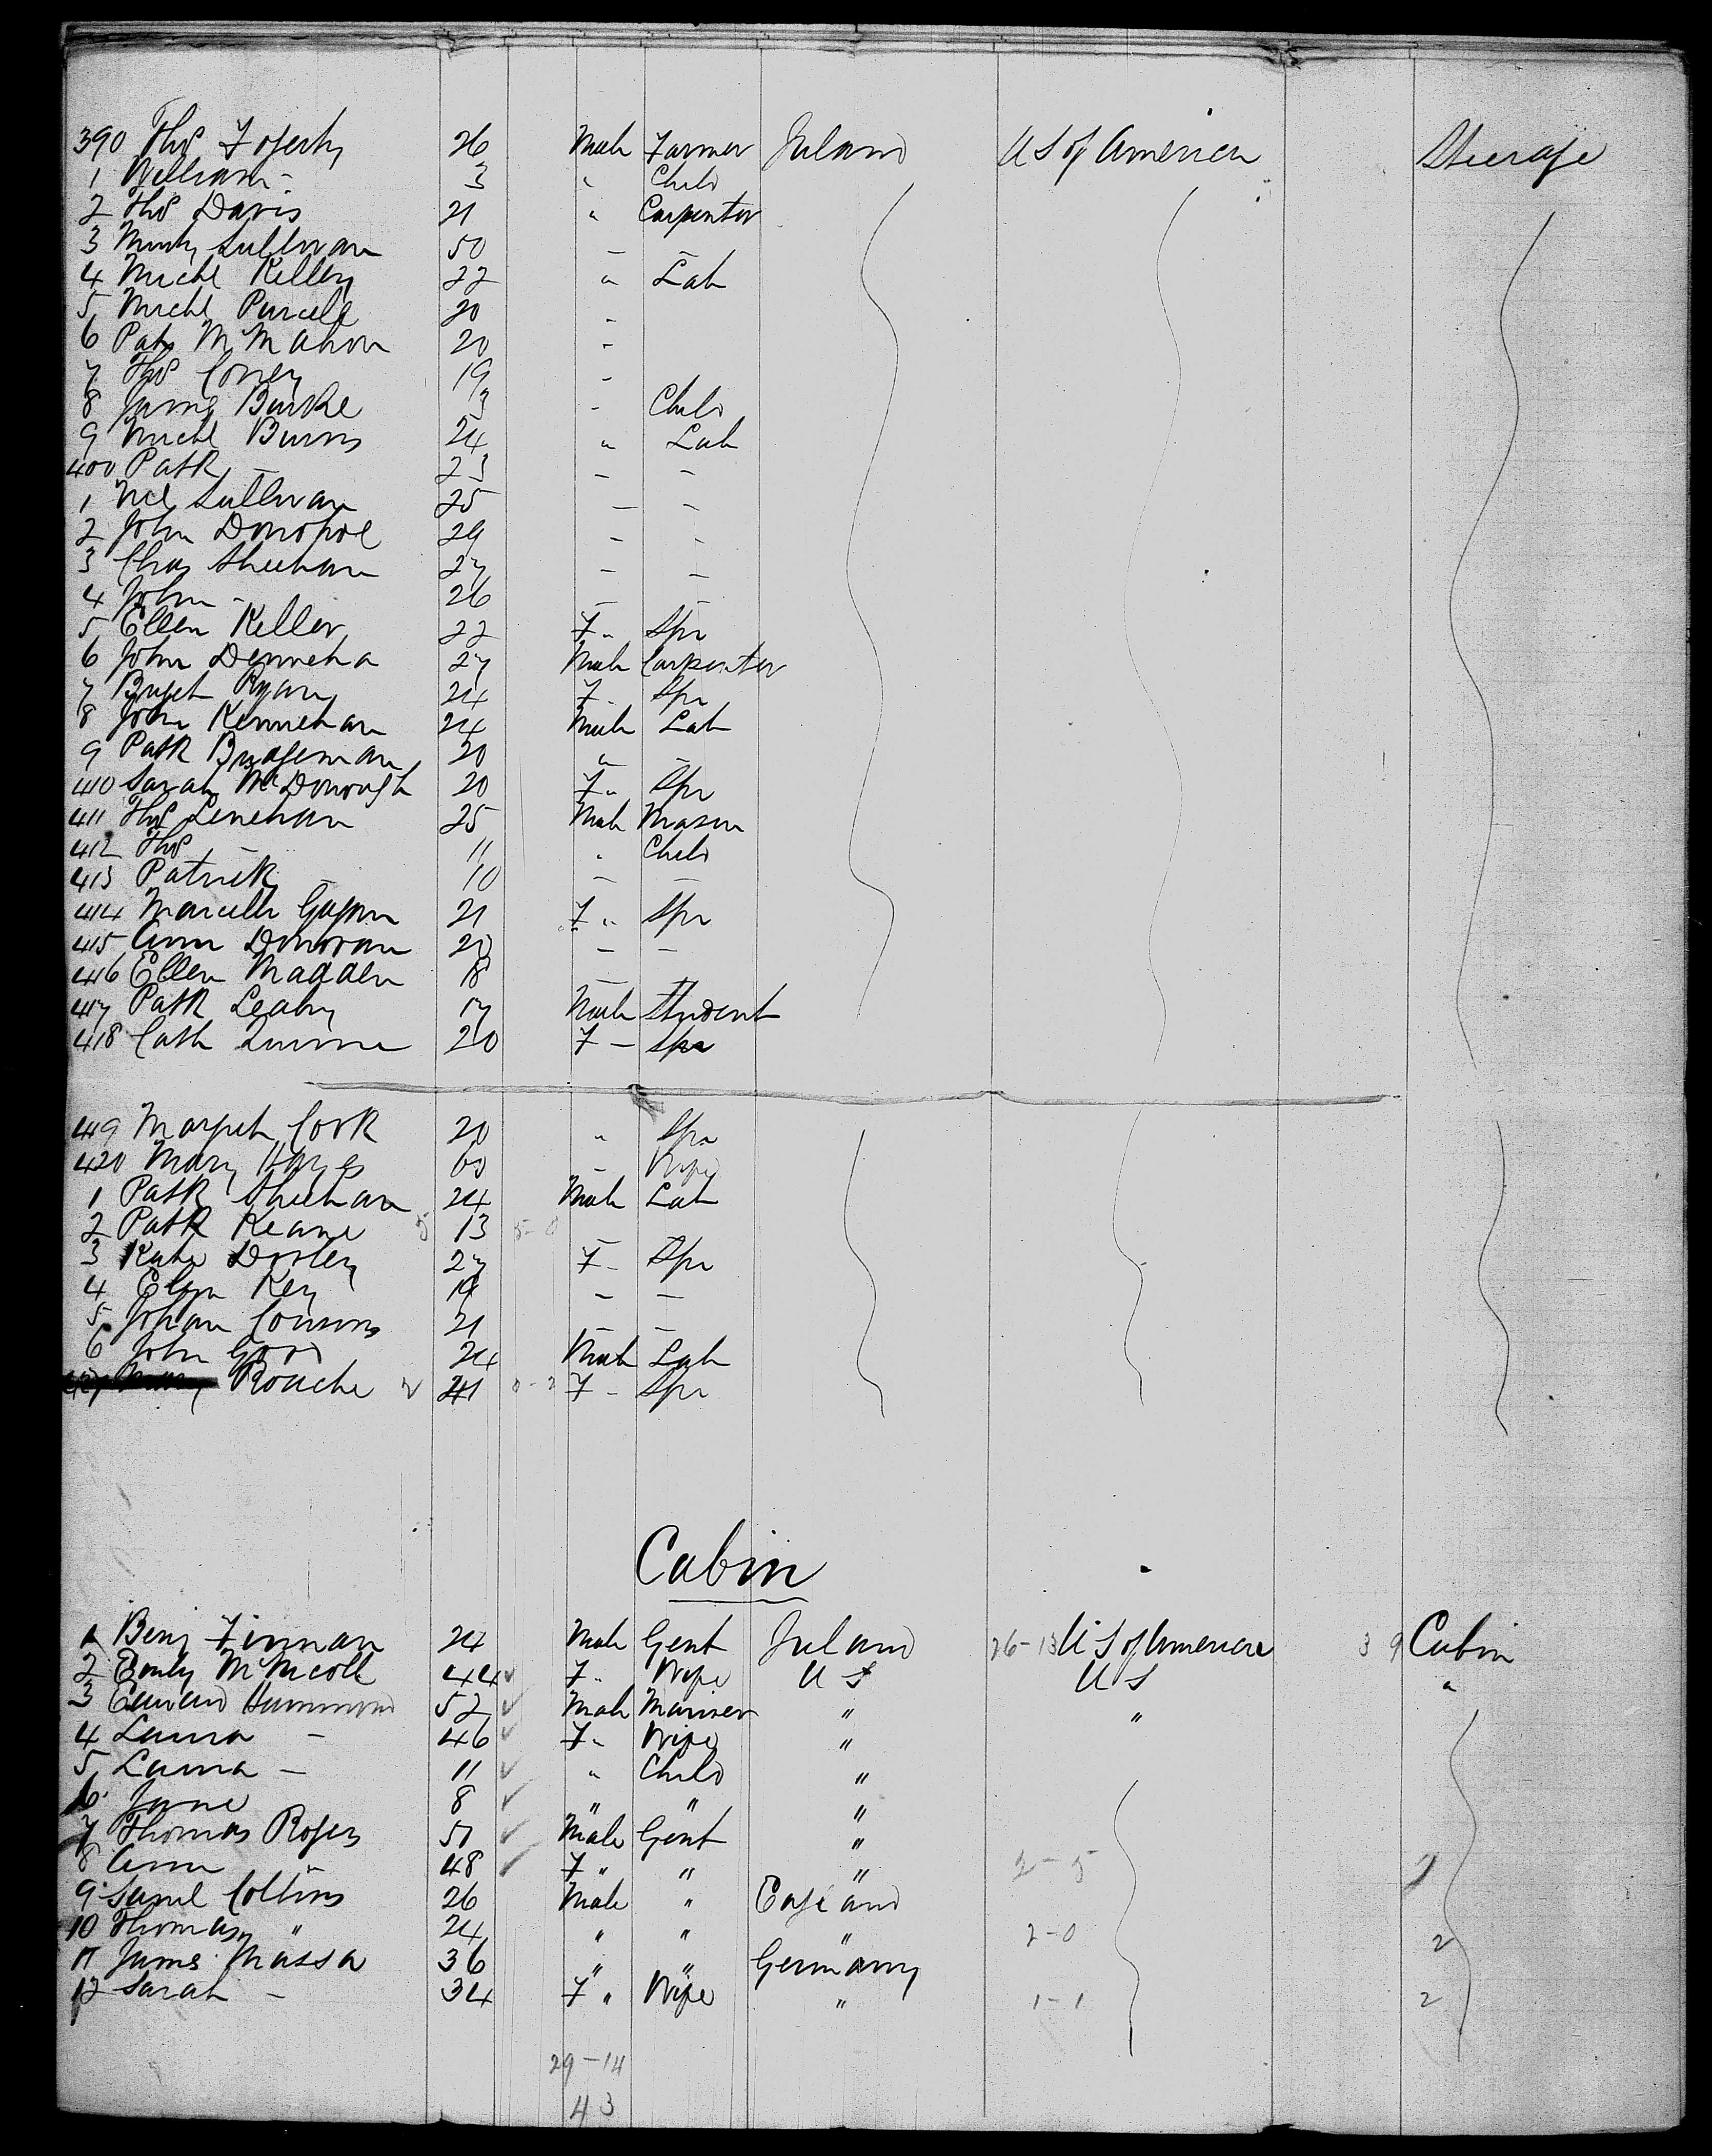 390 Thos Fogerty 26 Male Farmer Ireland U S of America Steerage
1 William - 3 " Child
2 Thos Davis 21 " Carpenter
3 Sullivan 50 - -
4 Michl Kelley 22 " Lab
5 Michl Purcell 20 -
6 Pat McMahon 20 -
7 Thos 19 -
8 James Burke 3 - Child
9 Michl Burns 24 " Lab
400 Patk - 23 - -
1 Sullivan 25 - -
2 John Donohoe 29 - -
3 Chas Sheehan 27 - -
4 John - 26 - -
5 Ellen Keller 22 F " Spr
6 John Denneha 27 Male Carpenter
7 Briget Ryan 24 F Spr
8 John Kennehan 24 Male Lab
9 Patk Bridgeman 20 " -
410 Sarah McDonough 20 F " Spr
411 Thos Lenehan 25 Male Mason
412 Thos - 11 " Child
413 Patrick - 10 - -
414 Marcella 21 F " Spr
415 Ann Donovan 20 - -
416 Ellen Madden 18 -
417 Patk Leahy 17 Male Student
418 Cath Quinn 20 F - Spr
419 Margret Cork 20 " Spr
420 Mary Hayes 60 - Wife
1 Patk Sheehan 24 Male Lab
2 Patk Keane 5 13 5-0 -
3 Kate 27 F - Spr
4 Key - -
5 Johan Cousins 21 - -
6 John Good 24 Male Lab
Roache 21 0-2 F - Spr
Cabin
1 Benj Finnan 24 Male Gent Ireland 26-13 U S of America 3 9 Cabin
2 Emily McNicoll 44 F " Wife U S U S "
3 Edward Hammond 52 Male Mariner " "
4 Laura - 46 F " Wife "
5 Laura - 11 " Child "
6 Jane 8 " " "
7 Thomas Rogers 51 Male Gent "
8 Ann - 48 F " " " 2-5
9 Saml Collins 26 Male " England
10 Thomas " 24 " " " 2-0 2
11 James Massa 36 " " Germany
12 Sarah - 34 F " Wife " 1-1 2
29-14
43